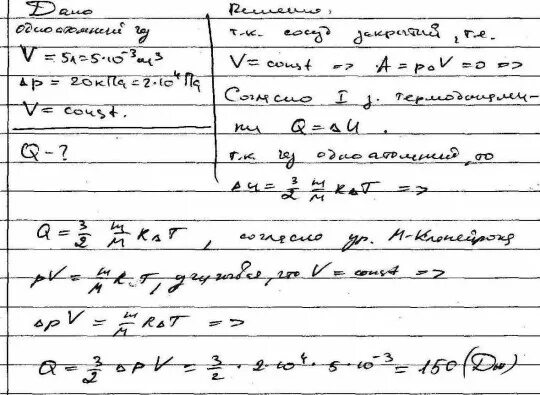 Дано
одноатомный газ
V = 5л = 5·10⁻³ м³
Δp = 20кПа = 2·10⁴ Па
V = const.
Q - ?
Решение.
т.к. сосуд закрытый, т.е.
V = const => A = pΔV = 0 =>
Согласно I з. термодинами-
ки Q = ΔU.
т.к газ одноатомный, то
Δu = 3/2 m/M RΔT =>
Q = 3/2 m/M RΔT, согласно ур. М-Клапейрона
pV = m/M RT, учитывая, что V = const =>
ΔpV = m/M RΔT =>
Q = 3/2 ΔpV = 3/2 · 2·10⁴ · 5·10⁻³ = 150 (Дж)